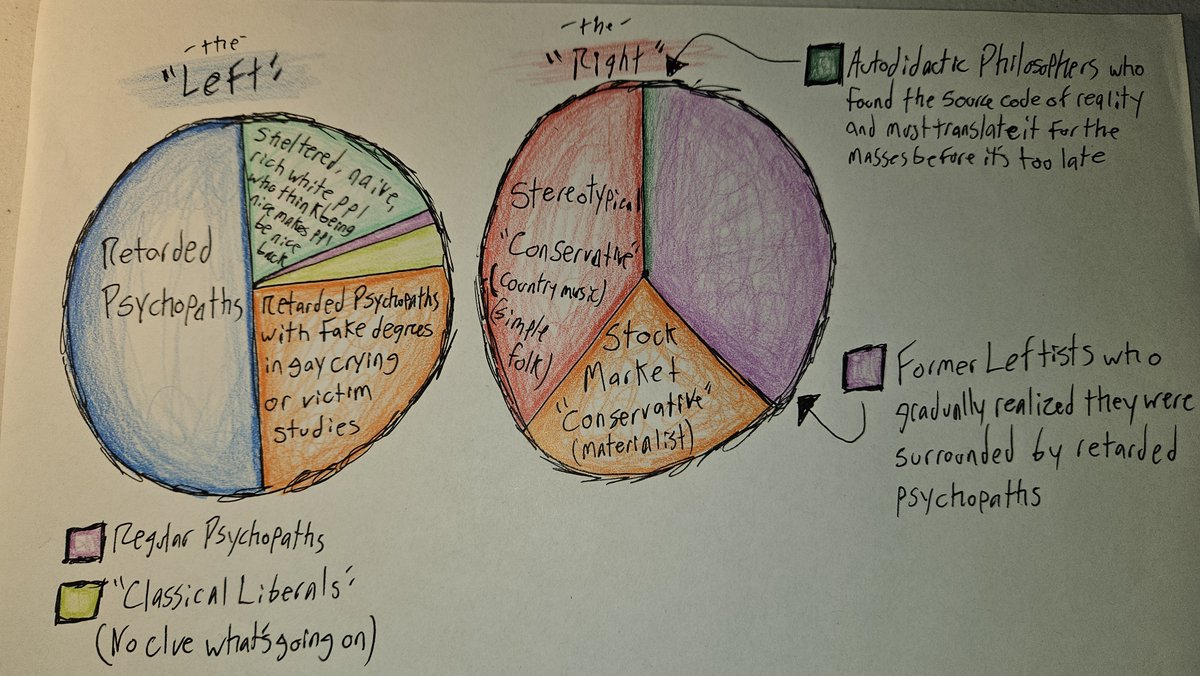 -the-
"Left"
Sheltered, naive,
rich white ppl
who think being
nice makes ppl
be nice
back
Retarded
Psychopaths
Retarded Psychopaths
with Fake degrees
in gay crying
or victim
studies
Regular Psychopaths
"Classical Liberals"
(No clue what's going on)
-the-
"Right"
Stereotypical
"Conservative"
(country music)
(simple
folk)
Stock
Market
"Conservative"
(materialist)
Autodidactic Philosophers who
found the source code of reality
and must translate it for the
masses before it's too late
Former Leftists who
gradually realized they were
surrounded by retarded
psychopaths